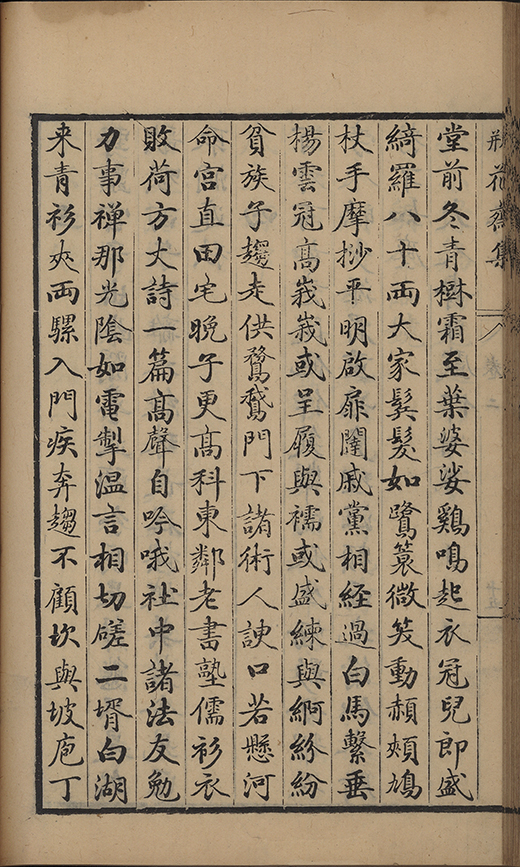 瓶花齋集 卷二
堂前冬青樹霜至葉婆娑鷄鳴起衣冠兒郎盛
綺羅八十両大家鬂髮如鷺簑微笑動頳頰鳩
杖手摩挱平明啟扉闥戚黨相経過白馬繫垂
楊雲冠髙峩峩或呈履與襦或盛練與絅紛紛
貧族子趨走供鶩鵞門下諸術人諛口若懸河
命宮直田宅晚子更髙科東鄰老書塾儒衫衣
敗荷方丈詩一篇髙聲自吟哦社中諸法友勉
力事禅那光陰如電掣温言相切磋二壻白湖
来青衫夾両騾入門疾奔趨不顧坎與坡庖丁